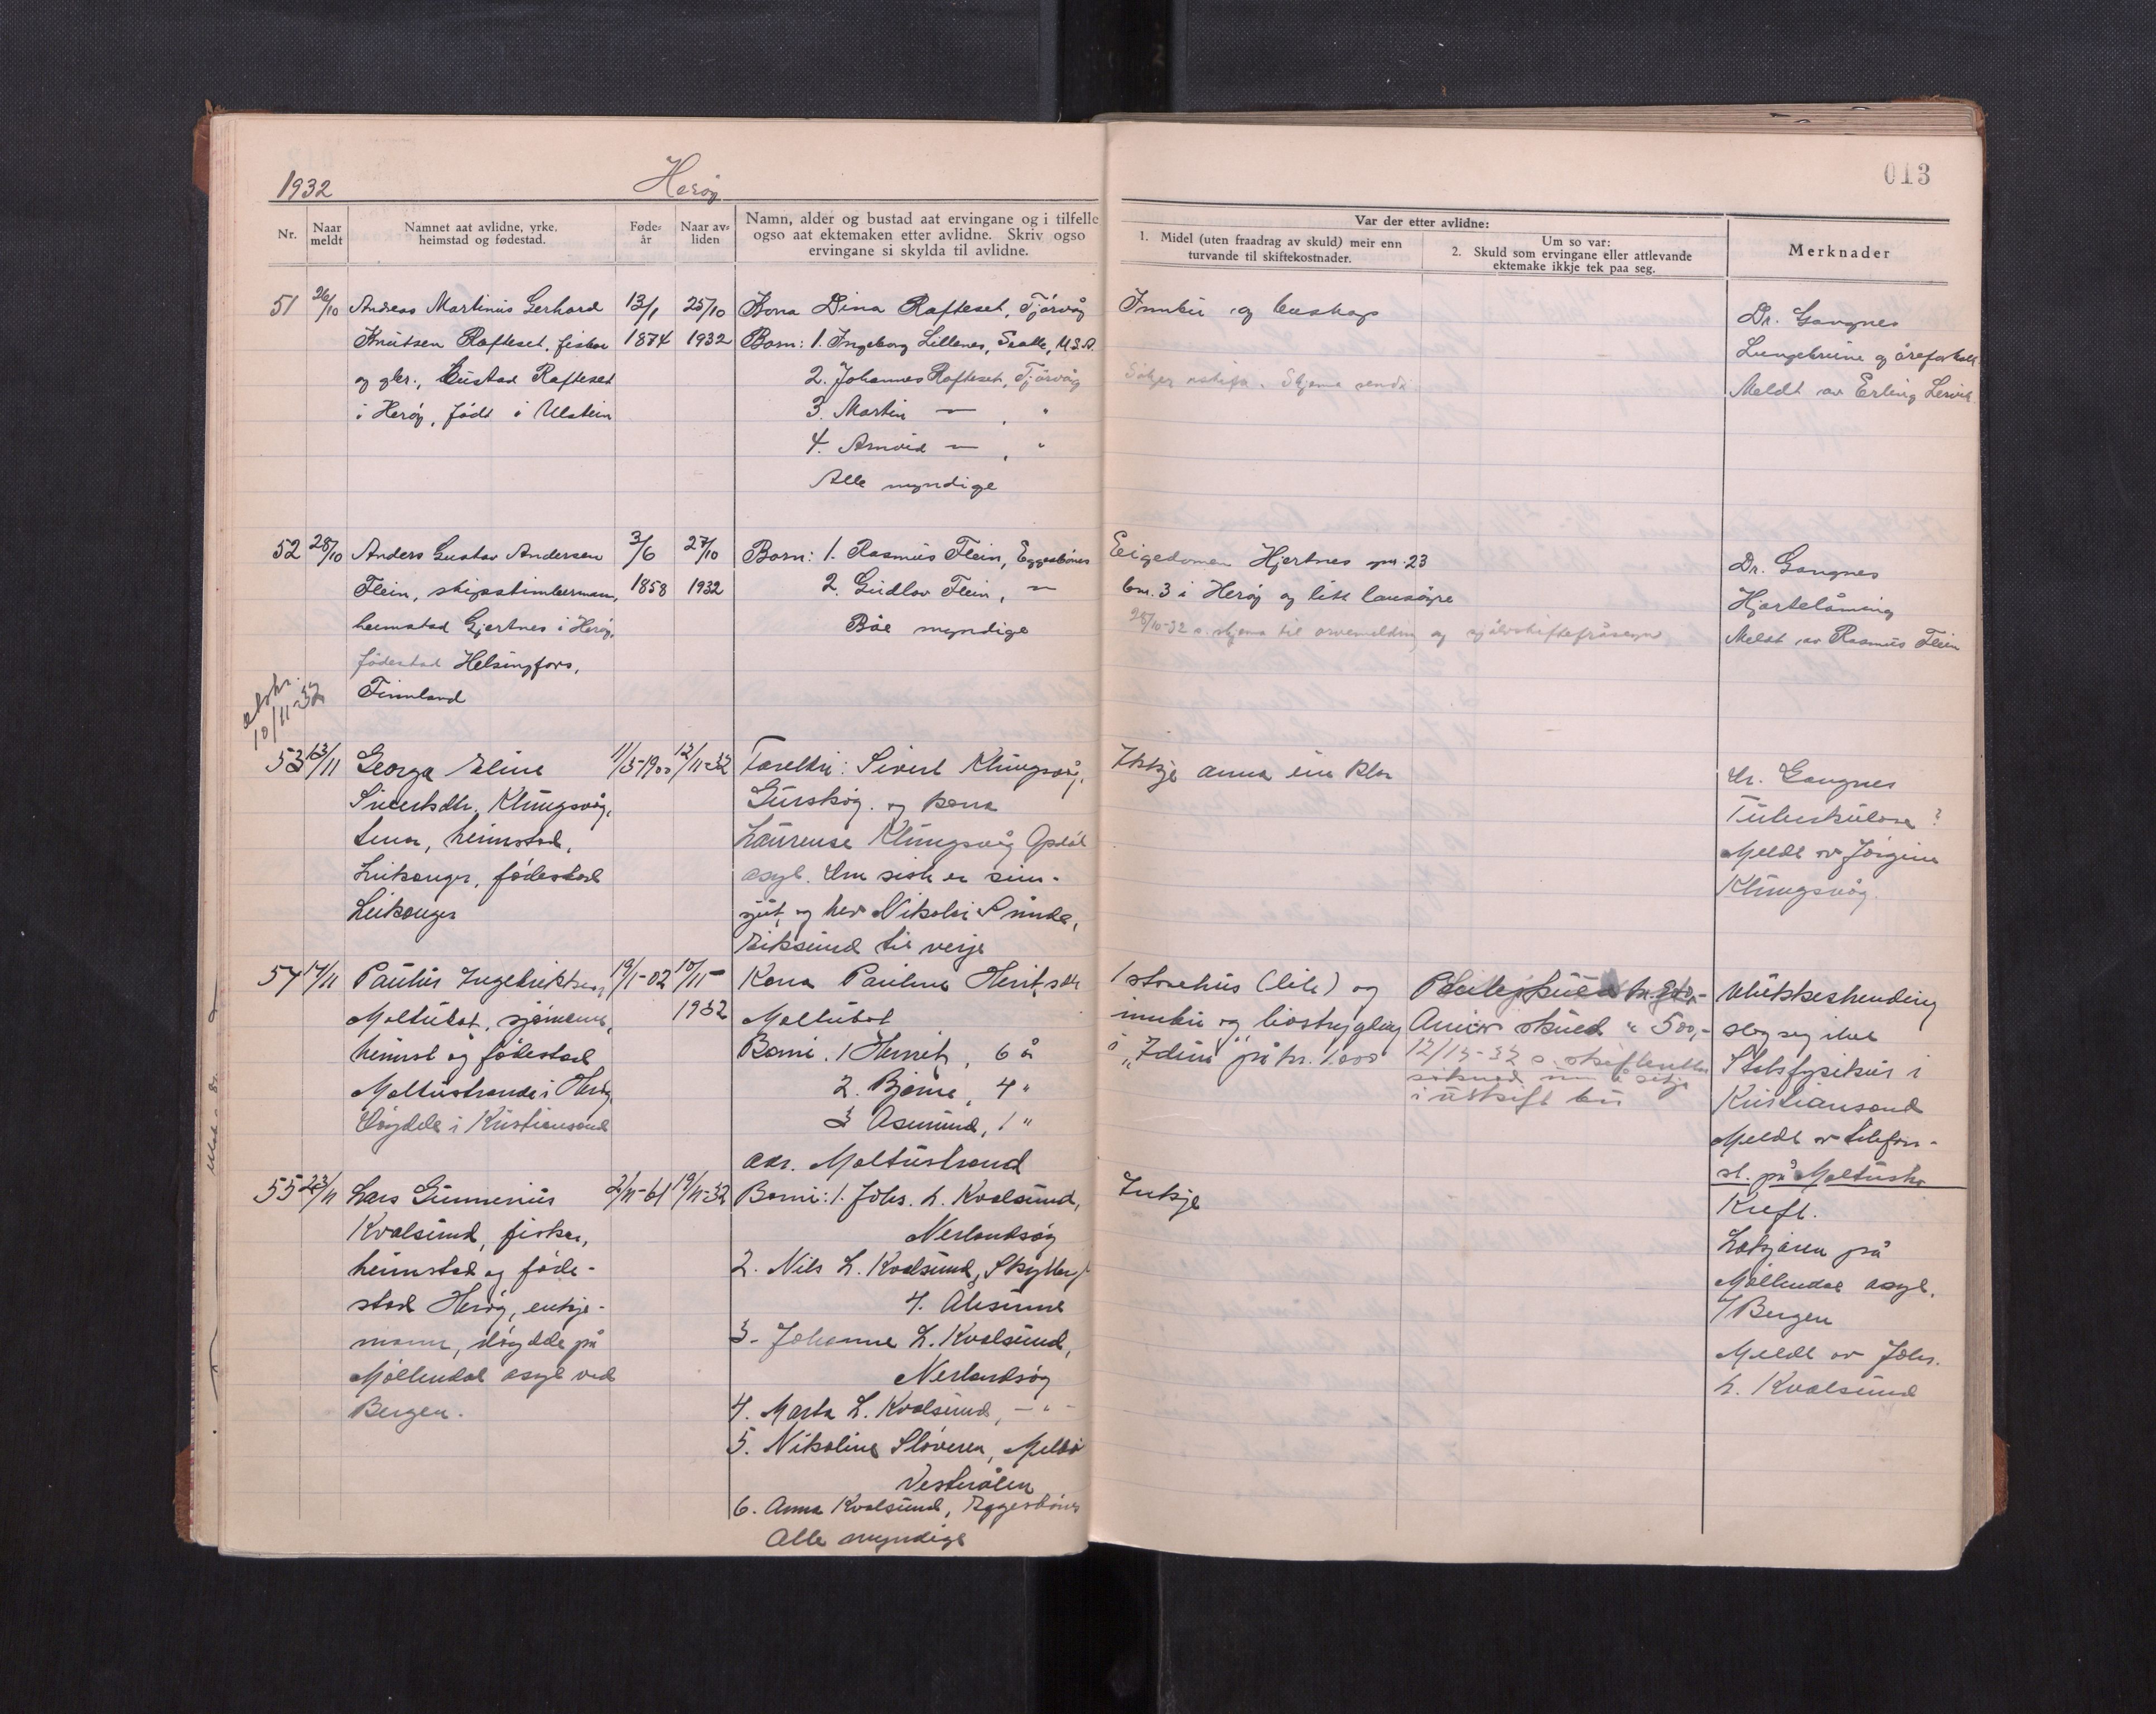 1932
Herøy
013
Nr.
Naar meldt
Namnet aat avlidne, yrke, heimstad og fødestad.
Føde= år
Naar av= liden
Namn, alder og bustad aat ervingane og i tilfelle
ogso aat ektemaken etter avlidne. Skriv ogso
ervingane si skylda til avlidne.
Var der etter avlidne:
1. Midel (uten fraadrag av skuld) meir enn
turvande til skiftekostnader.
Um so var:
2. Skuld som ervingane eller attlevande
ektemake ikkje tek paa seg.
Merknader
51 26/10 Andreas Martinus Gerhard 13/1 25/10 Kona Dina Rafteset, Tjørvåg
Knutsen Rafteset, fiskar 1874 1932 Born: 1. Ingeborg Lillenes, U.S.A.
og gbr., Bustad Rafteset 2. Johannes Rafteset, Tjørvåg
i Herøy, født i Ulstein 3. Martin — , "
4. Arnvid — , "
Alle myndige
Innbu og buskap
Skjema sendt
Dr. Gangnes
og
Meldt av Erling
52 28/10 Anders Gustav Andersen 3/6 27/10 Born: 1. Rasmus Flein, Eggesbønes
Flein, skipstimberman, 1858 1932 2. Gudlov Flein, —
heimstad Gjertnes i Herøy, Båe myndige
fødestad Helsingfors,
Finnland
avskr.
10/11-32
Eigedomen Hjertnes gnr. 23
bnr. 3 i Herøy og litt lausøyre
28/10-32 s. skjema til arvemelding og
Dr. Gangnes
Hjartelåming
Meldt av Rasmus Flein
53 13/11 Georga Eline 11/5-1900 12/11-32 Foreldri: Sivert Klungsvåg,
Sivertsdtr. Klungsvåg, Gurskøy. og kona
heimstad, Laurense Klungsvåg Opdøl
Leikanger, fødestad asyl. siste er sinn-
Leikanger sjuk, og hev Nikolai Sunde,
Eiksund til verje
Ikkje anna enn klær
Dr. Gangnes
Tuberkulose ?
Meldt av Jørgine
Klungsvåg.
54 14/11 Paulus Ingebriktsen 19/1-02 10/11- Kona Pauline
Moltubak, sjømann, 1932 Moltubak
heimst og fødestad Born. 1 6 år
Moltustranda i Herøy 2. Bjarne, 4 "
Døydde i Kristiansand 3 Asmund, 1 "
adr. Moltustrand
1 stovehus (lite) og
innbu og livstrygding
i "Idun" på kr. 1.000
Annan skuld " 500,-
12/12-32 s.
i
Ulukkeshending
slog seg ihel
Statsfysikus i
Kristiansand
Meldt av telefon-
st. på Moltustr.
55 23/11 Lars Gunnerius 2/11-61 19/11-32 Born: 1. Johs. L. Kvalsund,
Kvalsund, fisker, Nerlandsøy
heimstad og føde- 2. Nils L. Kvalsund,
stad Herøy, enkje- Ålesund
mann, døydde på 3. Johanne L. Kvalsund,
Møllendal asyl ved Nerlandsøy
Bergen. 4. Marta L. Kvalsund, - " -
5. Nikoline Melbo
Vesterålen
6. Anna Kvalsund, Eggesbønes
Alle myndige
Inkje
Kreft.
Lækjaren på
Møllendal asyl,
v/ Bergen
Meldt av Johs.
L. Kvalsund